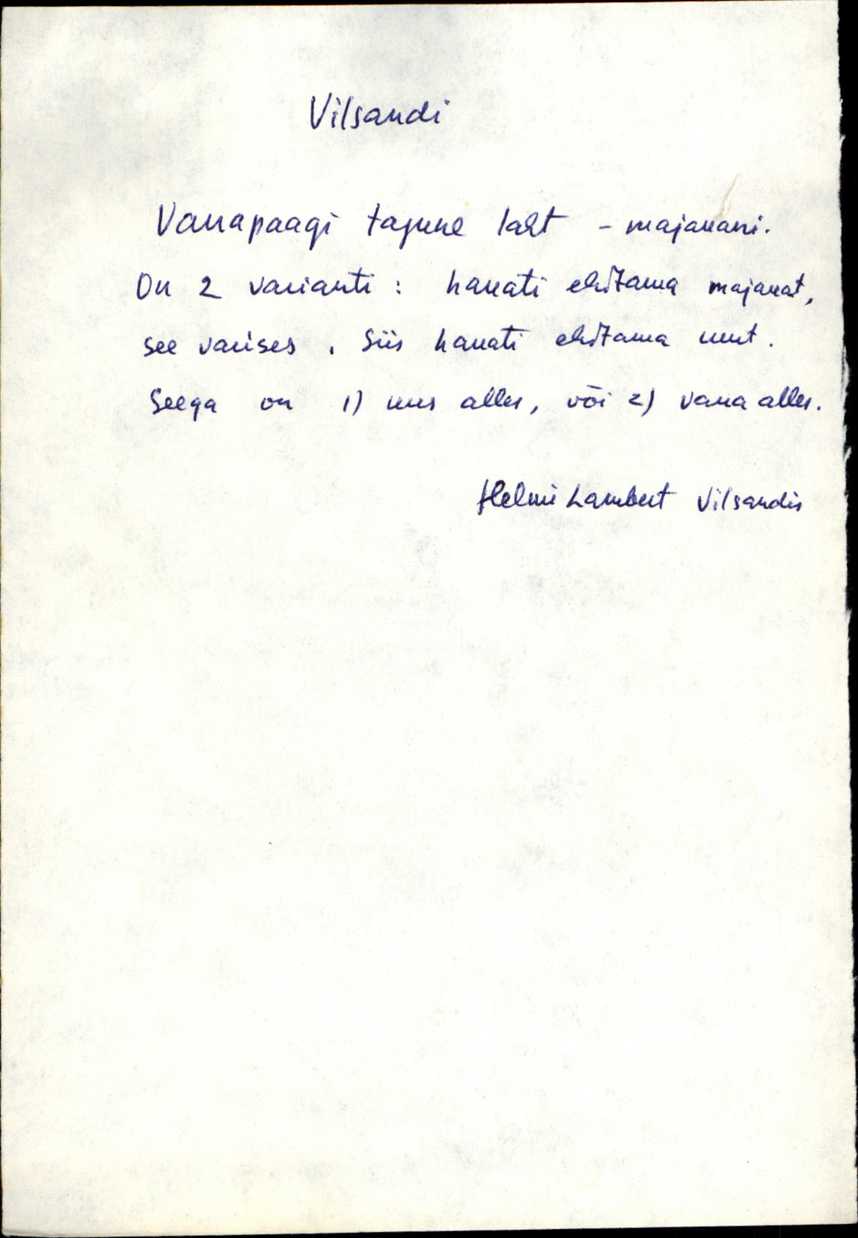 Vilsandi
Vanapaagi tagune laht - majanani.
On 2 varianti : hakati ehitama majakat,
see varises . Siis hakati ehitama uut.
Seega on 1) uus alles, või 2) vana alles.
Helmi Lambert Vilsandis